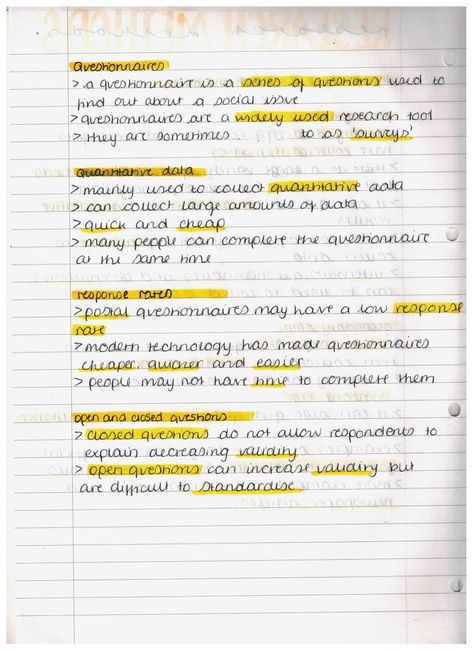 Questionnaires
> a questionnaire is a series of questions used to
find out about a social issue
> questionnaires are a widely used research tool
> they are sometimes to as 'surveys'
quantitative data
> mainly used to collect quantitative data
> can collect large amounts of data
> quick and cheap
> many people can complete the questionnaire
at the same time
response rates
> postal questionnaires may have a low response
rate
> modern technology has made questionnaires
cheaper, quicker and easier
> people may not have time to complete them
open and closed questions
> closed questions do not allow respondents to
explain decreasing validity
> open questions can increase validity but
are difficult to standardise